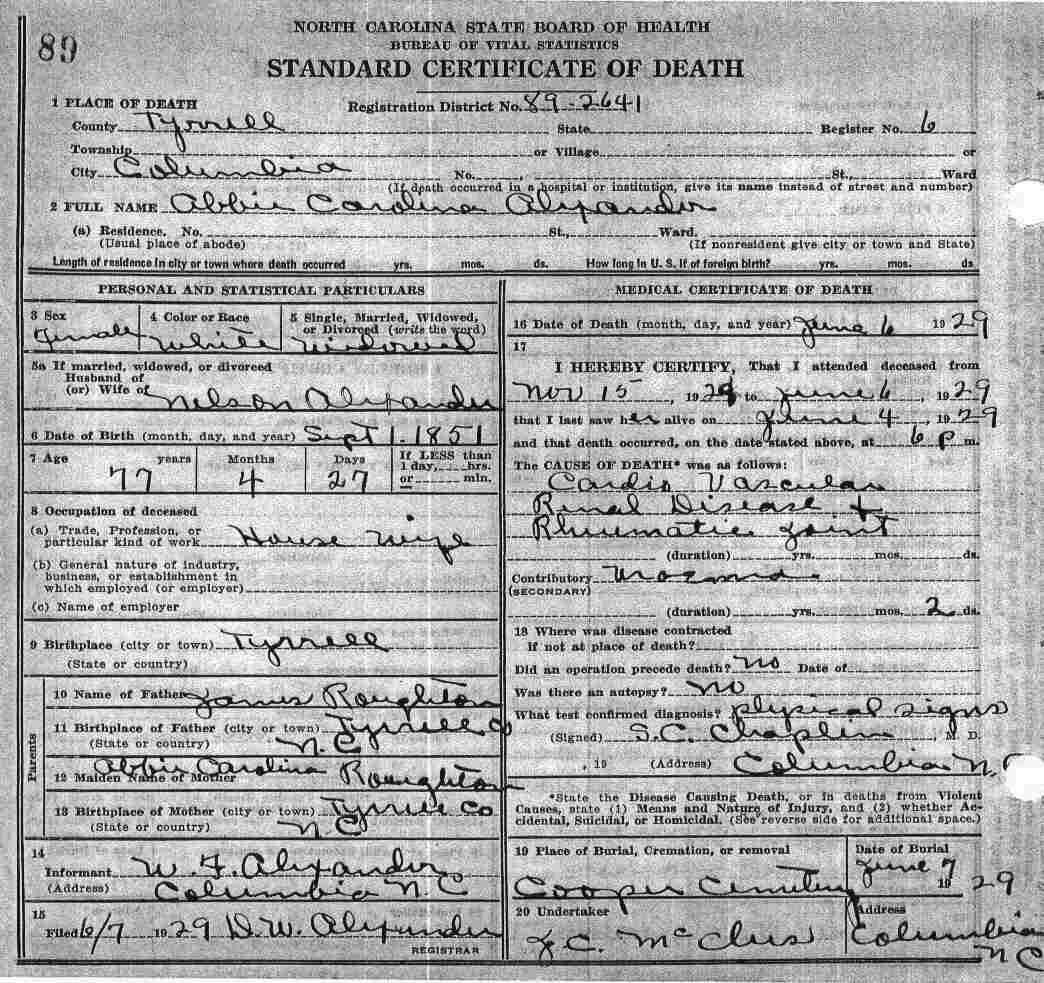 89
NORTH CAROLINA STATE BOARD OF HEALTH
BUREAU OF VITAL STATISTICS
STANDARD CERTIFICATE OF DEATH
1 PLACE OF DEATH Registration District No. 89-2641
County Tyrrell State Register No. 6
Township or Village or
City Columbia No. , St., Ward
(If death occurred in a hospital or institution, give its name instead of street and number)
2 FULL NAME Abbie Carolina Alexander
(a) Residence. No. St., Ward.
(Usual place of abode) (If nonresident give city or town and State)
Length of residence in city or town where death occurred yrs. mos. ds. How long in U. S. if of foreign birth? yrs. mos. ds
PERSONAL AND STATISTICAL PARTICULARS
3 Sex 4 Color or Race 5 Single, Married, Widowed,
or Divorced (write the word)
Female White Widowed
5a If married, widowed, or divorced
Husband of
(or) Wife of Nelson Alexander
6 Date of Birth (month, day, and year) Sept 1. 1851
7 Age years Months Days If LESS than
1 day, hrs.
77 4 27 or min.
8 Occupation of deceased
(a) Trade, Profession, or
particular kind of work House wife
(b) General nature of industry,
business, or establishment in
which employed (or employer)
(c) Name of employer
9 Birthplace (city or town) Tyrrell
(State or country)
Parents
10 Name of Father James Roughton
11 Birthplace of Father (city or town) Tyrrell Co
(State or country) N.C
12 Maiden Name of Mother Abbie Carolina Roughton
13 Birthplace of Mother (city or town) Co
(State or country) N.C
14
Informant W. F. Alexander
(Address) Columbia N.C
15
Filed 6/7 1929 D.W. Alexander
REGISTRAR
MEDICAL CERTIFICATE OF DEATH
16 Date of Death (month, day, and year) June 6 1929
17
I HEREBY CERTIFY, That I attended deceased from
Nov 15, 192 to June 6, 1929
that I last saw her alive on June 4, 1929
and that death occurred, on the date stated above, at 6 P m.
The CAUSE OF DEATH* was as follows:
Cardio Vascular
Renal Disease +
Rheumatic Joint
(duration) yrs. mos. ds.
Contributory
(SECONDARY)
(duration) yrs. mos. 2 ds.
18 Where was disease contracted
if not at place of death?
Did an operation precede death? No Date of
Was there an autopsy? No
What test confirmed diagnosis? Physical signs
(Signed) S.C. Chaplin, M D.
, 19 (Address) Columbia N.C
*State the Disease Causing Death, or in deaths from Violent
Causes, state (1) Means and Nature of Injury, and (2) whether Ac-
cidental, Suicidal, or Homicidal. (See reverse side for additional space.)
19 Place of Burial, Cremation, or removal Date of Burial
Cooper Cemetery June 7 1929
20 Undertaker Address
C. Columbia
N C